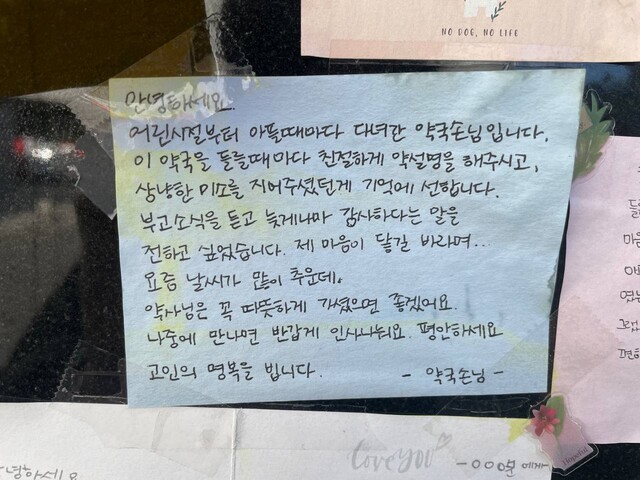 NO DOG, NO LIFE
안녕하세요.
어린시절부터 아플때마다 다녀간 약국손님입니다.
이 약국을 들를때마다 친절하게 약설명을 해주시고,
상냥한 미소를 지어주셨던게 기억에 선합니다.
부고소식을 듣고 늦게나마 감사하다는 말을
전하고 싶었습니다. 제 마음이 닿길 바라며..
요즘 날씨가 많이 추운데,
약사님은 꼭 따뜻하게 가셨으면 좋겠어요.
나중에 만나면 반갑게 인사나눠요. 평안하세요
고인의 명복을 빕니다. - 약국손님 -
마음
편하
Hopeful
love you
-OOO분 에게
안녕하세요